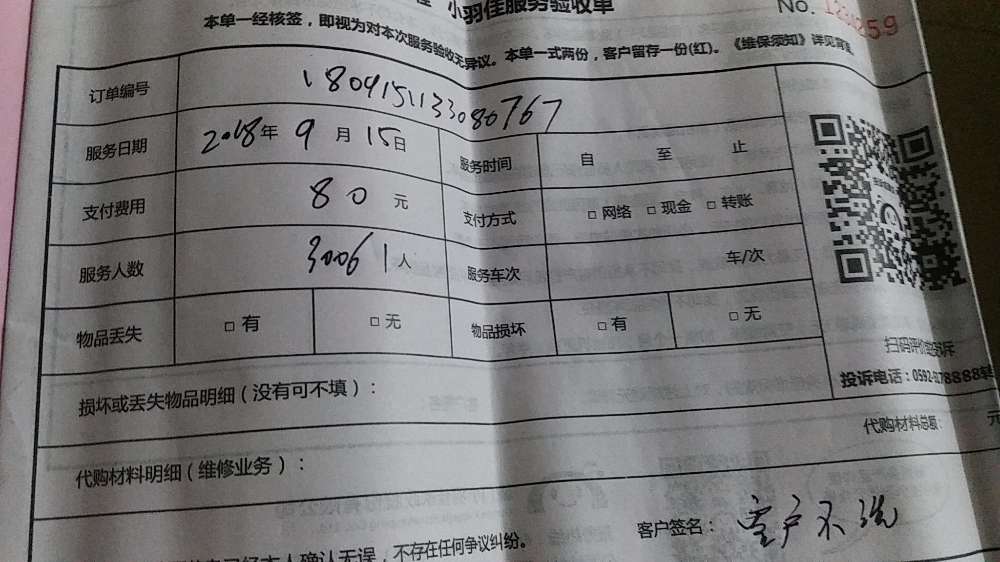 小羽佳服务验收单
No.
本单一经核签，即视为对本次服务验收无异议。本单一式两份，客户留存一份(红)。《维保须知》详见背面
订单编号 180915113308​0767
服务日期 2018年 9 月 15日 服务时间 自 至 止
支付费用 80 元 支付方式 □ 网络 □ 现金 □ 转账
服务人数 30061人 服务车次 车/次
物品丢失 □ 有 □ 无 物品损坏 □ 有 □ 无
扫码评价或投诉
投诉电话：0592-
损坏或丢失物品明细（没有可不填）：
代购材料总额： 元
代购材料明细（维修业务）：
客户签名： 客户不洗
本人确认无误，不存在任何争议纠纷。